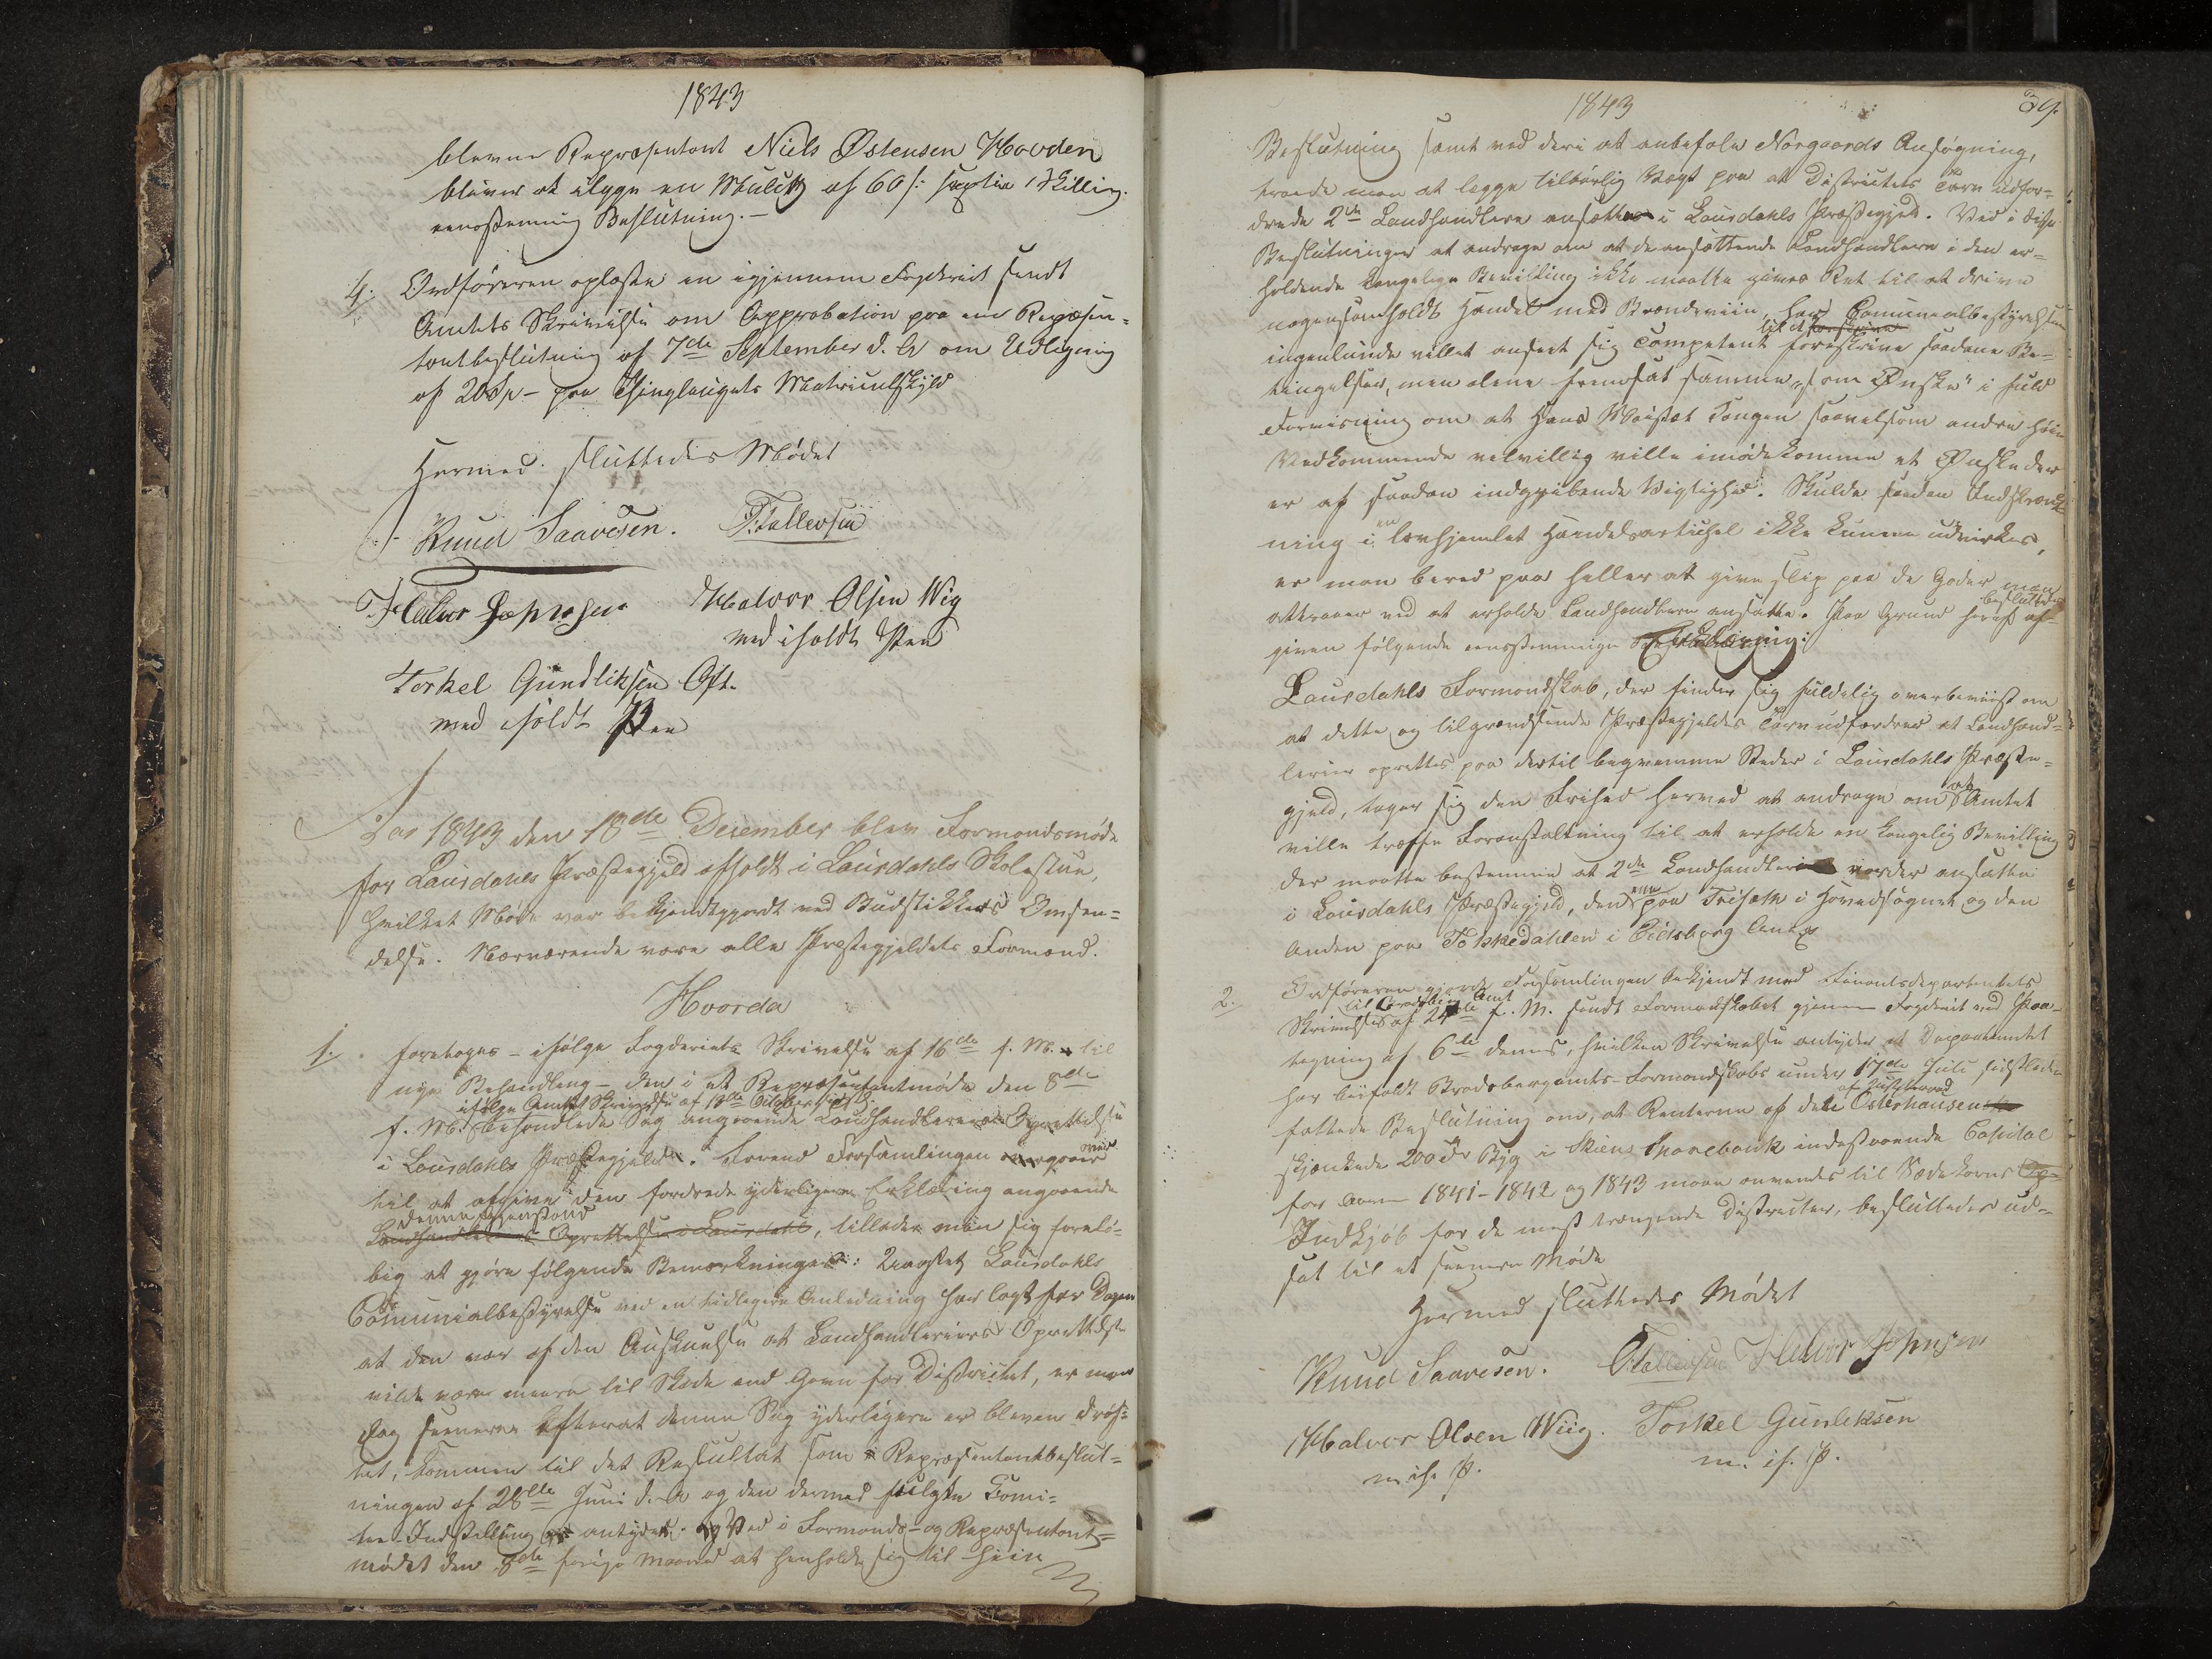 1843
blevne Repræsentant Niels Østensen Hovden
bliver at ilegge en Mulkt af 60 s: sextie Skilling.
eenstemmig Beslutning.–
4. Ordføreren oplæste en igjennem Fogderiet sendt
Amtets Skrivelse om Approbation paa en Repræsen=
tantbeslutning af 7de September d. A. om Udligning
af 20 Spd – paa Thinglaugets Matriculskyld
Hermed sluttedes Mødet
Knud Saavesen. T. Tallevsen
Halvor Olsen Wig
med iholdt Pen
Torkel Gundliksen Oft.
med iholdt Pen
Aar 1843 den 18de December blev Formandsmøde
for Laurdahls Præstegjeld afholdt i Laurdahls Skolestue,
hvilket Møde var bekjendtgjordt ved Budstikkens Omsen=
delse. Nærværende vare alle Præstegjeldets Formænd.
Hvorda
1. foretoges – ifølge Fogderiets Skrivelse af 16de f. M. til
nye Behandling – den i et Repræsentantmøde den 8de
ifølge Amtets Skrivelse af 18de October sidstl.
f. M. behandlede Sag angaaende Landhandleries Oprettelse
i Laurdahls Præstegjeld. Forend Forsamlingen overgaaer
til at afgive den fordrede yderligere Erklæring angaaende
denne Gjenstand
Landhandleries Oprettelse i Laurdahl, tillader man sig forelø=
big at gjøre følgende Bemærkninger: Uagtet Laurdahls
Comunialbestyrelse ved en tidligere Anledning har lagt for Dagen
at den var af den Anskuelse at Landhandleriers Oprettelse
vilde være meere til Skade end Gavn for Districtet, er man
dog senere efterat denne Sag yderligere er bleven drøf=
tet, kommen til det Resultat som Repræsentantbeslut=
ningen af 28de Juni d. A. og den dermed fulgte Comi=
tee Indstilling antyder. Ved i Formands- og Repræsentant=
mødet den 8de forige Maaned at henholde sig til hiin
1843
39.
Beslutning samt ved deri at anbefale Norgaards Ansøgning,
troede man at legge tilbørlig Vægt paa at Districtets Tarv udfor=
drede 2de Landhandlere ansatte i Laurdahls Præstegjeld. Ved i disse
Beslutninger at andrage om at de ansættende Landhandlere i den er=
holdende kongelige Bevilling ikke maatte gives Ret til at drive
nogensomholdt Handel med Brændeviin, har Comunealbestyrelsen
ingenlunde villet anseet sig competent til at foreskrive saadane Be=
tingelser, men alene fremsat samme "som Ønske" i fuld
Forvisning om at Hans Maistæt Kongen saavelsom andre høie
Vedkommende velvillig ville imødekomme et Ønske der
er af saadan indgribende Vigtighed. Skulde saadan Indskrænk
ning i en lovhjemlet Handelsartichel ikke kunne udvirkes,
er man bered paa heller at give slip paa de Goder man
attraaer ved at erholde Landhandlere ansatte. Paa Grund heraf af=
beslutte
given følgende eenstemmige Erklæring:
Laurdahls Formandskab, der finder sig fuldelig overbeviist om
at dette og tilgrændsende Præstegjeldes Tarv udfordrer at Landhand=
lerier oprettes paa dertil beqvemme Steder i Laurdahls Præste=
gjeld, tager sig den Frihed herved at andrage om at Amtet
ville træffe Foranstaltning til at erholde en kongelig Bevilling
der maatte bestemme at 2de Landhandlere vorder ansatte
i Laurdahls Præstegjeld, den ene paa Trisæth i Hovedsognet og den
Anden paa Tokkedahlen i Eidsborg Anex
2. Ordføreren gjorde Forsamlingen bekjendt med Finantsdepartentets
til Bradsberg Amt
Skrivelse af 24de f. M. sendt Formandskabet gjennem Fogderiet ved Paa=
tegning af 6te dennes, hvilken Skrivelse antyder at Departementet
har bifaldt Bradsbergamts-Formandskabs under 17de Juli sidstleden
fattede Beslutning om, at Renterne af dete Osterhausenske
skjænkede 200 Tdr Byg i Skiens Sparebank indestaaende Capital
for Aarene 1841–1842 og 1843 maae anvendes til Sædekorns
Indkjøb for de mest trængende Districter, besluttedes ud=
sat til et senere Møde
Hermed sluttedes Mødet
Knud Saavesen. T. Tallevsen Halvor Johnsen
Halvor Olsen Wiig. Torkel Gunleksen
m. ih. P. m. ih. P.